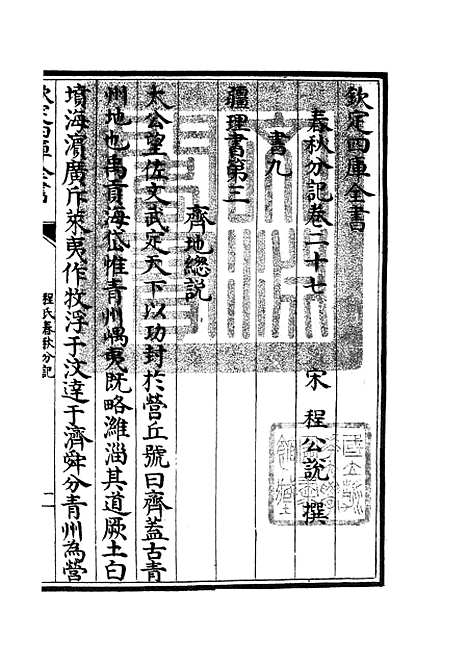 欽定四庫全書
春秋分記卷二十七
宋 程公說 撰
書九
疆理書第三
齊地總說
太公望佐文武定天下以功封於營丘號曰齊蓋古青
州地也禹貢海岱惟青州嵎夷既略濰淄其道厥土白
墳海濱廣斥萊夷作牧浮于汶達于濟舜分青州為營
欽定四庫全書
程氏春秋分記
一